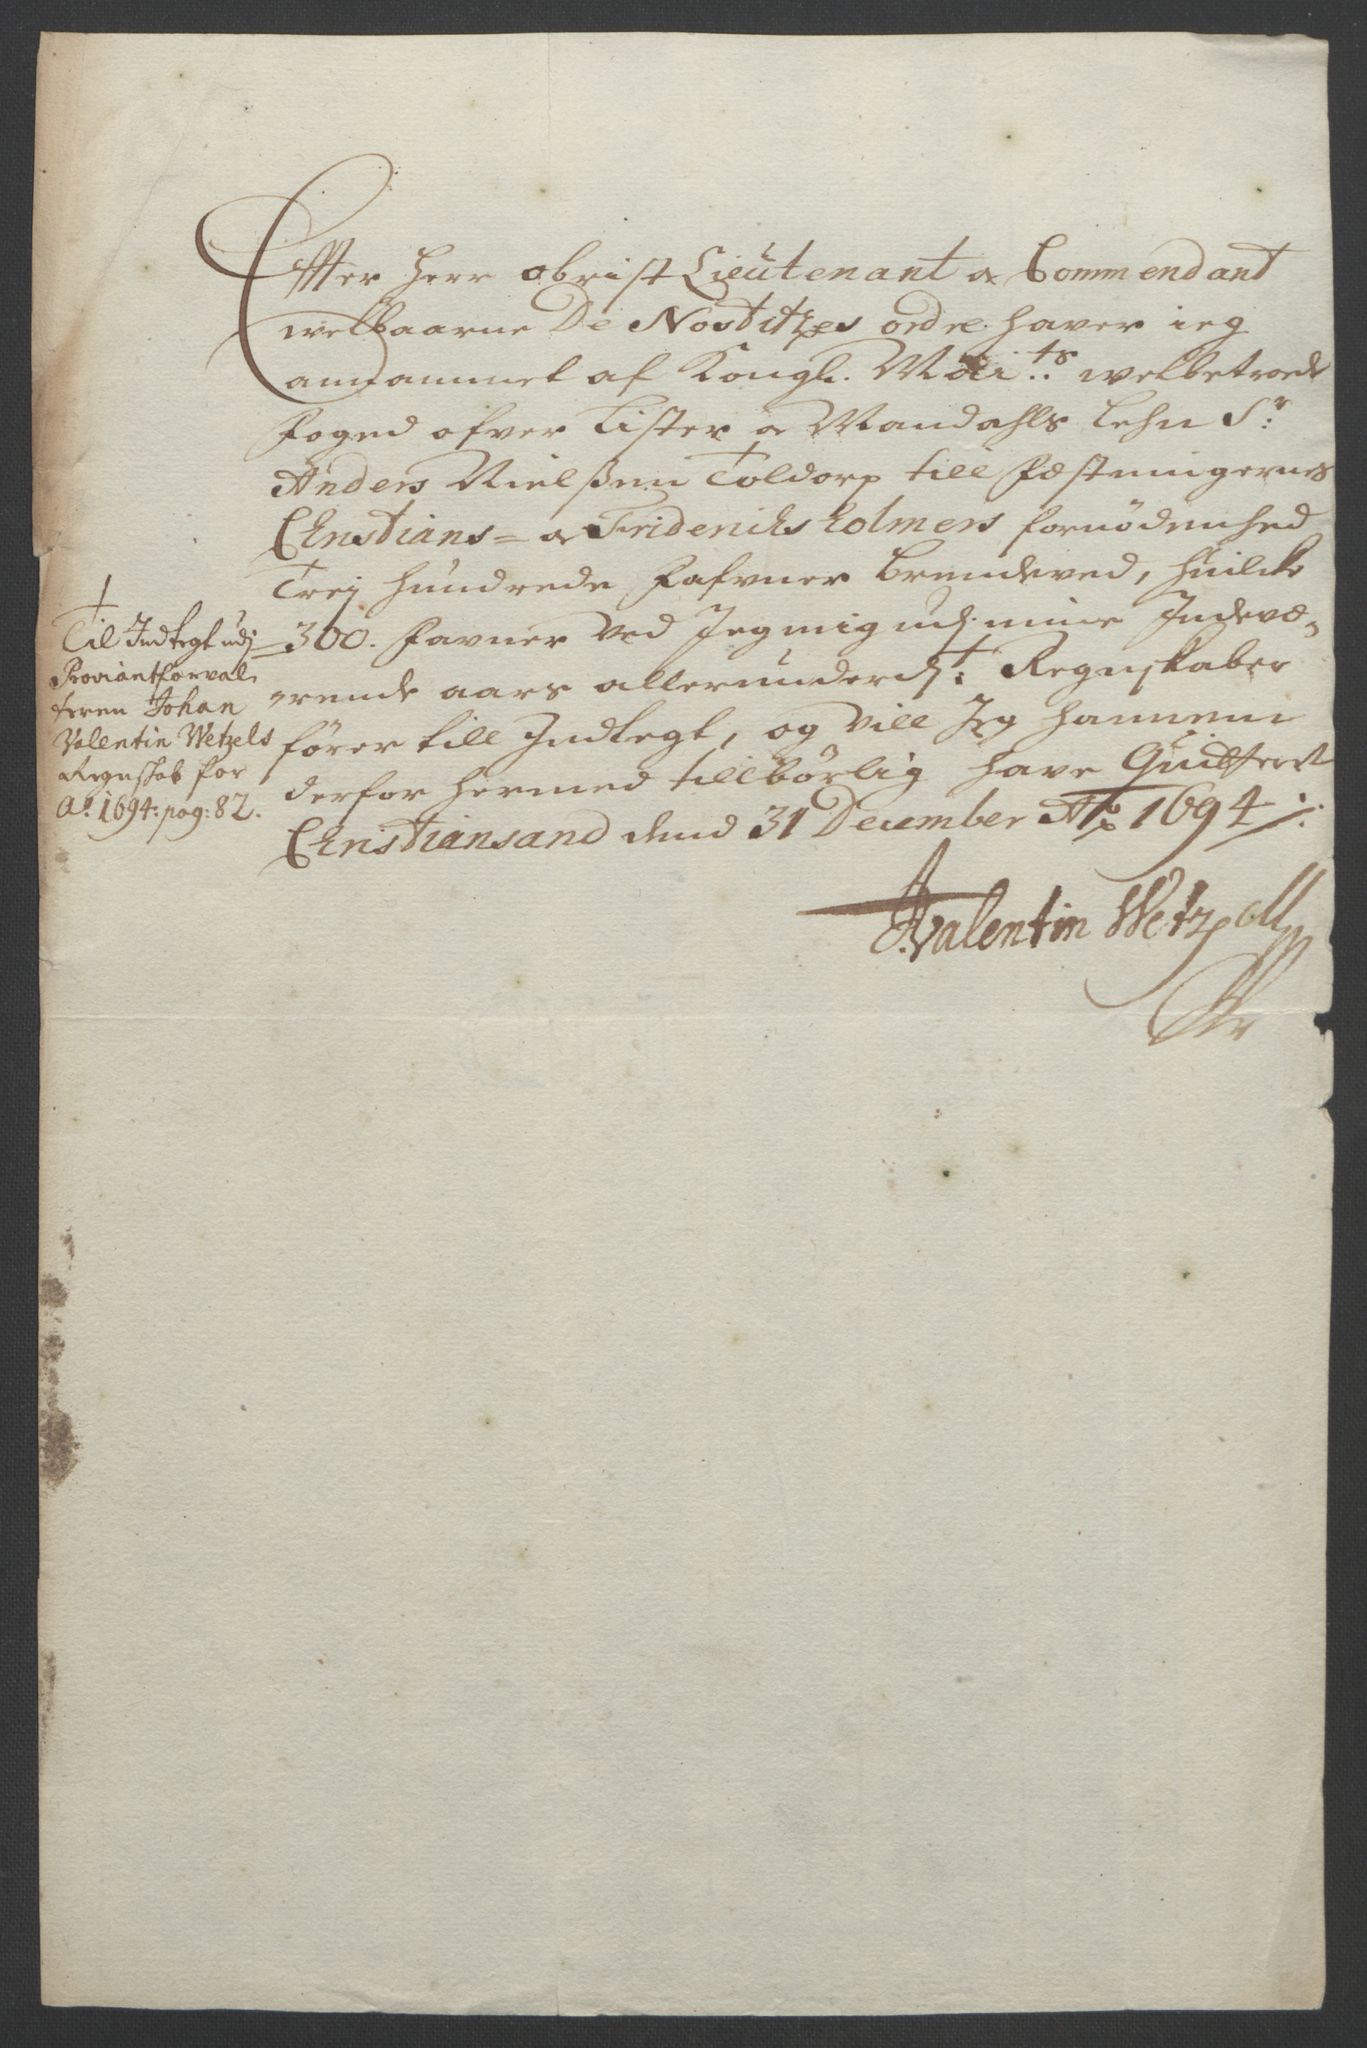 Effter Herr Obrist Lieutenant & Commendant
welbaarne De Nostitzes ordre haver ieg
annammet af Kongl. Maits. welbetroede
Foged ofver Lister & Mandahls Lehn Sr:
Anders Nielßen Toldorp till Fæstningernes
Christians= & Friderichsholmers fornödenhed
Trej hundrede Fafvner Brendeved, huilcke
300. Favner Ved Jeg mig udj mine Indevæ=
rende aars allerunderdt: Regnskaber
förer till Indtegt, og vill Jeg hannem
derfor hermed tillbörlig have Quitteret
Christiansand dend 31 December Ao 1694 /:
JValentin Wetzell
Til Indtegt udj
Proviantforval-
teren Johan
Valentin Wetzels
Regnskab for
Ao. 1694: pag: 82.